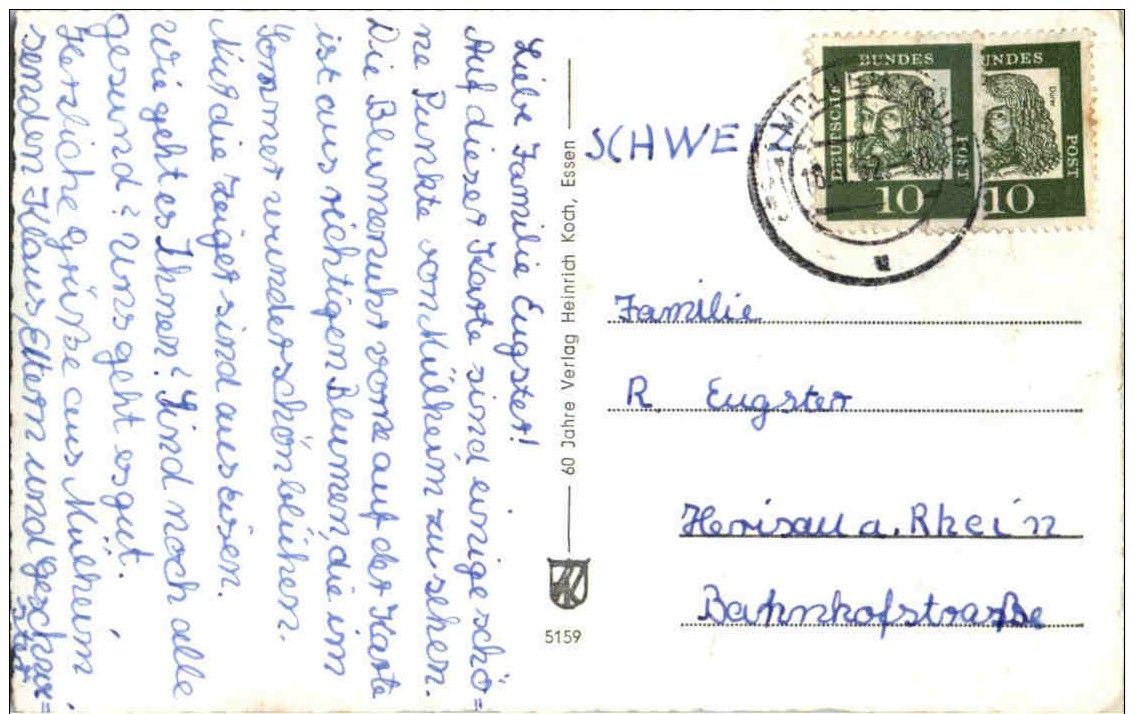 Liebe Familie Eugster!
Auf dieser Karte sind einige schö=
ne Punkte von Mülheim zu sehen.
Die Blumenuhr vorne auf der Karte
ist aus richtigen Blumen, die im
Sommer wunderschön blühen.
Nur die Zeiger sind aus Eisen.
Wie geht es Ihnen? Sind noch alle
gesund? Uns geht es gut.
Herzliche Grüße aus Mülheim
senden Klaus, Eltern und Geschwi=
ster
60 Jahre Verlag Heinrich Koch, Essen
5159
SCHWEIZ
DEUTSCHE
BUNDES
POST
Dürer
10
BUNDES
POST
Dürer
10
Familie
R. Eugster
Herisau a. Rhein
Bahnhofstraße